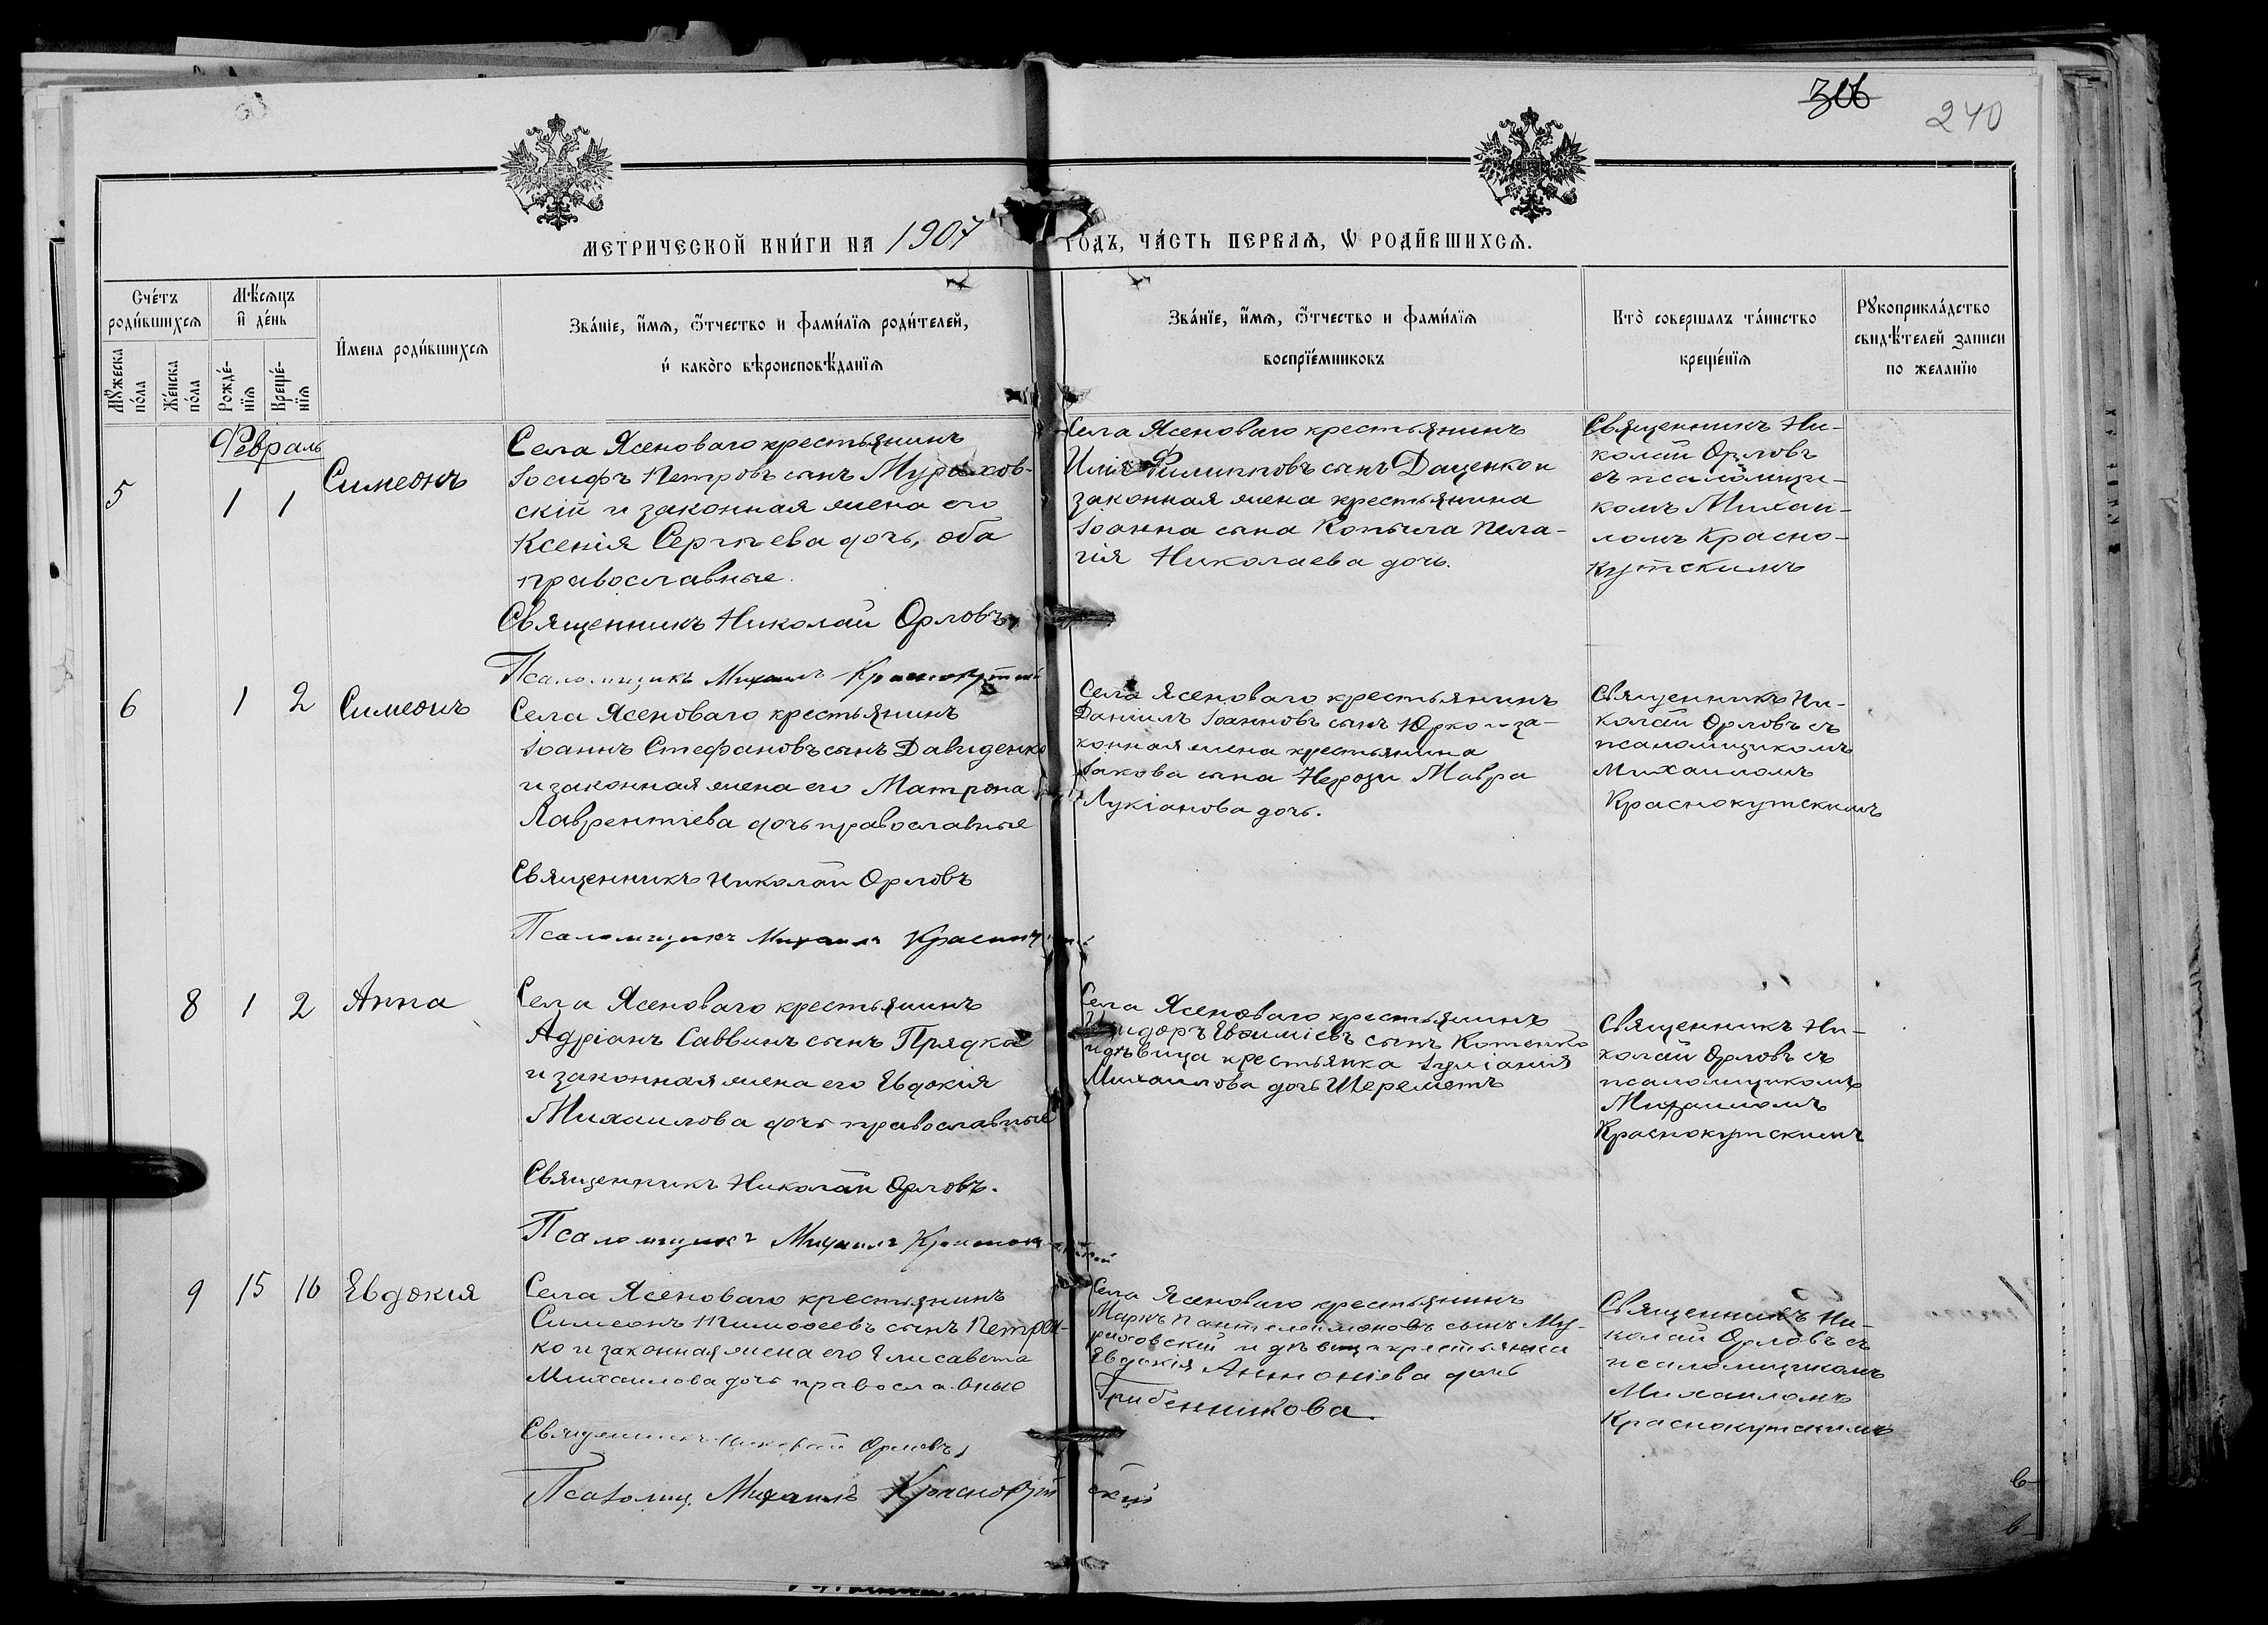 306
240
МЕТРИЧЕСКОЙ КНИ́ГИ НА 1907 ГО́ДЪ, ЧА́СТЬ ПЕРВАѦ, Ѡ РОДИ́ВШИХСѦ.
Сче́тъ роди́вшихсѧ
Мѣ́сѧцъ и҆ де́нь
И҆мена роди́вшихсѧ
Зва́нїе, и҆́мѧ, ѻ҆́тчество и фами́лїѧ роди́телей,
и҆ како́го вѣроисповѣ́данїѧ
Зва́нїе, и҆́мѧ, ѻ҆́тчество и фами́лїѧ
воспрїе́мниковъ
Кто̀ совершалъ та́инство
креще́нїѧ
Рꙋкоприкла́дство
свидѣ́телей записи
по желанїю
Мꙋжеска по́ла
Же́нска по́ла
Рожде́-
нїѧ
Креще́-
нїѧ
Февраль
5
1
1
Симеонъ
Села Ясеноваго крестьянинъ
Іосифъ Петровъ сынъ Мурахов-
скій и законная жена его
Ксенія Сергѣева дочь, оба
православные.
Священникъ Николай Орловъ
Псаломщикъ Михаилъ Краснокутскій
Села Ясеноваго крестьянинъ
Илія Филипповъ сынъ Даценко и
законная жена крестьянина
Іоанна сына Копыла Пела-
гія Николаева дочь.
Священникъ Ни-
колай Орловъ
съ псаломщи-
комъ Михаи-
ломъ Красно-
кутскимъ
6
1
2
Симеонъ
Села Ясеноваго крестьянинъ
Іоаннъ Стефановъ сынъ Давиденко
и законная жена его Матрона
Лаврентіева дочь православные
Священникъ Николай Орловъ
Псаломщикъ Михаилъ
Села Ясеноваго крестьянинъ
Даніилъ Іоанновъ сынъ Юрко и за-
конная жена крестьянина
Іакова сына Мавра
Лукіанова дочь.
Священникъ Ни-
колай Орловъ съ
псаломщикомъ
Михаиломъ
Краснокутскимъ
8
1
2
Анна
Села Ясеноваго крестьянинъ
Адріанъ Саввинъ сынъ Прядка
и законная жена его Евдокія
Михаилова дочь православные
Священникъ Николай Орловъ.
Псаломщикъ Михаилъ
Села Ясеноваго крестьянинъ
Исидоръ Евѳиміевъ сынъ Котенко
и дѣвица крестьянка Іуліанія
Михаилова дочь Шереметъ
Священникъ Ни-
колай Орловъ съ
псаломщикомъ
Михаиломъ
Краснокутскимъ
9
15
16
Евдокія
Села Ясеноваго крестьянинъ
Симеонъ Тимоѳеевъ сынъ Петрен-
ко и законная жена его Елисавета
Михаилова дочь православные
Священникъ Николай Орловъ
Псаломщ. Михаилъ Краснокутскій
Села Ясеноваго крестьянинъ
Маркъ Пантелеимоновъ сынъ Му-
раховскій и дѣвица крестьянка
Евдокія Антоніева дочь
Грибенникова.
Священникъ Ни-
колай Орловъ съ
псаломщикомъ
Михаиломъ
Краснокутскимъ